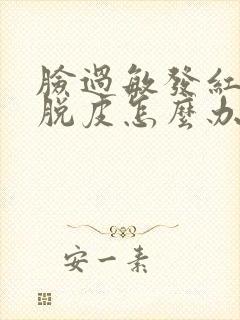 臉過敏發紅
脫皮怎麼办
安一素